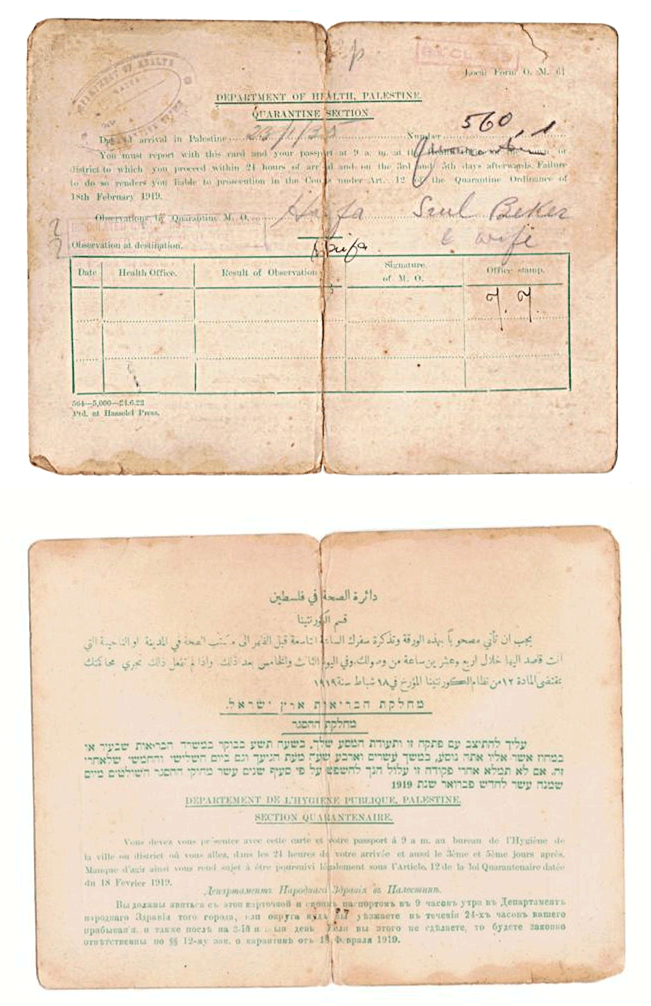 DEPARTMENT OF HEALTH
QUARANTINE
DECLARED
Local Form O. M. 61
DEPARTMENT OF HEALTH, PALESTINE.
QUARANTINE SECTION
Date of arrival in Palestine Number 560
You must report with this card and your passport at 9 a. m. at the or
district to which you proceed within 24 hours of arrival and on the 3rd and 5th days afterwards. Failure
to do so renders you liable to prosecution in the Courts under Art. 12 of the Quarantine Ordinance of
18th February 1919.
Observations by Quarantine M. O. Haifa Srul Beker
& wife
Observation at destination. Haifa
Date Health Office. Result of Observation Signature of M. O. Office stamp.
504—5,000—24.6.22
Ptd. at Hassolel Press.
دائرة الصحة في فلسطين
قسم الكورنتينا
يجب ان تأتي مصحوباً بهذه الورقة وتذكرة سفرك الساعة التاسعة قبل الظهر الى مكتب الصحة في المدينة او الناحية التي
انت قاصد اليها خلال اربع وعشرين ساعة من وصولك وفي اليوم الثالث والخامس بعد ذلك واذا لم تفعل ذلك تجري محاكمتك
بمقتضى المادة ١٢ من نظام الكورنتينا المؤرخ في ١٨ شباط سنة ١٩١٩
מחלקת הבריאות ארץ ישראל.
מחלקת ההסגר
עליך להתיצב עם פתקה זו ותעודת המסע שלך, בשעה תשע בבוקר במשרד הבריאות שבעיר או
במחוז אשר אליו אתה נוסע, במשך עשרים וארבע שעה מעת הגיעך וגם ביום השלישי והחמישי שלאחרי
זה. אם לא תמלא אחרי פקודה זו עלול הנך להשפט על פי סעיף שנים עשר מחוקי ההסגר השולטים מיום
שמנה עשר לחדש פברואר שנת 1919
DEPARTEMENT DE L'HYGIENE PUBLIQUE, PALESTINE.
SECTION QUARANTENAIRE.
Vous devez vous présenter avec cette carte et votre passport à 9 a m. au bureau de l'Hygiène de
la ville ou district où vous allez, dans les 24 heures de votre arrivée et aussi le 3ème et 5ème jours après.
Manque d'agir ainsi vous rend sujet à être poursuivi légalement sous l'Article. 12 de la loi Quarantenaire datée
du 18 Fevrier 1919.
Департаментъ Народнаго Здравія въ Палестинѣ.
Вы должны явиться съ этой карточкой и своимъ паспортомъ въ 9 часовъ утра въ Департаментъ
народнаго Здравія того города, или округа куда вы уѣзжаете въ теченіи 24-хъ часовъ вашего
прибыванія, и также послѣ на 3-ій и день Если вы этого не сдѣлаете, то будете законно
отвѣтственны по §§ 12-му зак. о карантинѣ отъ 18 Февраля 1919.